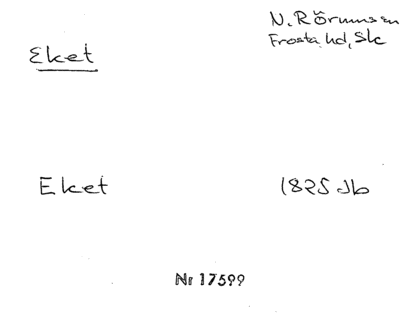 N. Rörum sn
Frosta hd, Sk
Eket
Eket 1825 Jb
Nr 17599